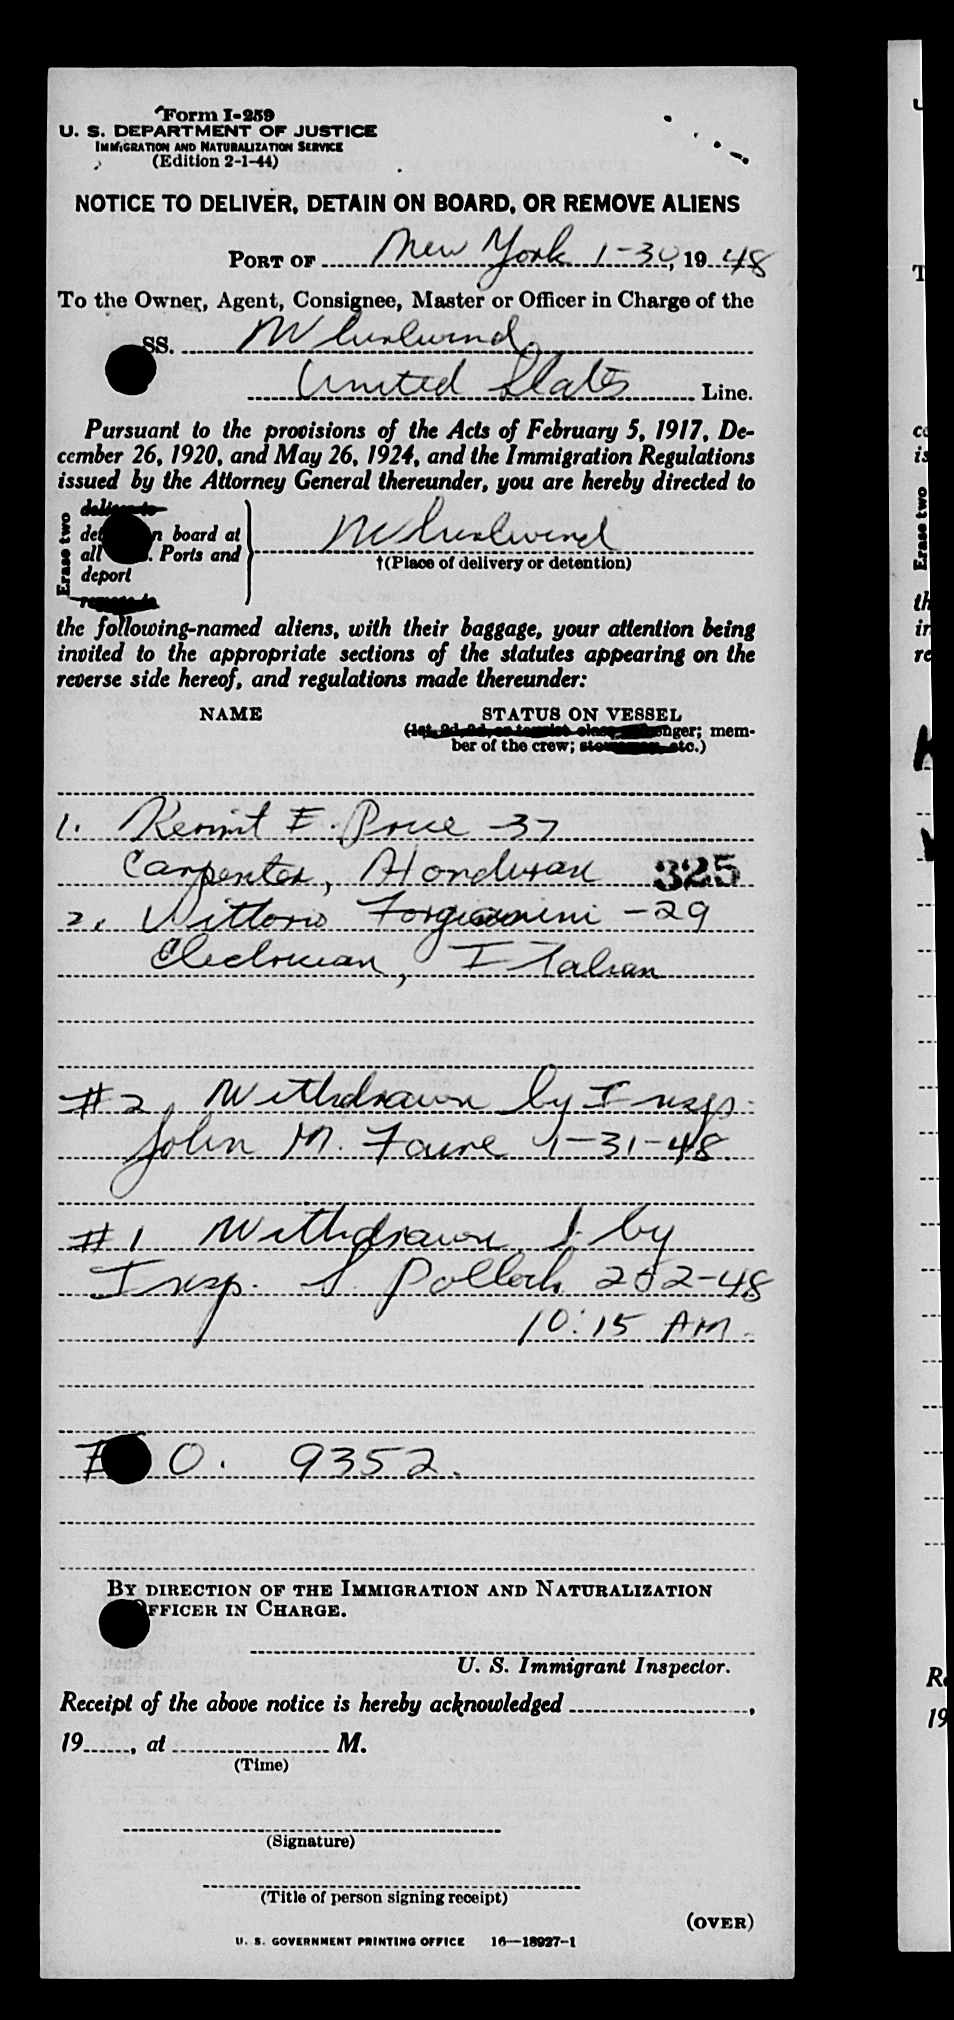 Form I-259
U. S. DEPARTMENT OF JUSTICE
IMMIGRATION AND NATURALIZATION SERVICE
(Edition 2-1-44)
NOTICE TO DELIVER, DETAIN ON BOARD, OR REMOVE ALIENS
PORT OF New York 1-30, 19 48
To the Owner, Agent, Consignee, Master or Officer in Charge of the
SS. Whirlwind
United States Line.
Pursuant to the provisions of the Acts of February 5, 1917, De-
cember 26, 1920, and May 26, 1924, and the Immigration Regulations
issued by the Attorney General thereunder, you are hereby directed to
Erase two
deliver to
board at
all Ports and
deport
remove to
Whirlwind
†(Place of delivery or detention)
the following-named aliens, with their baggage, your attention being
invited to the appropriate sections of the statutes appearing on the
reverse side hereof, and regulations made thereunder:
NAME STATUS ON VESSEL
mem-
ber of the crew; etc.)
1. Kermit E. Price -37
Carpenter, Honduran 325
2. Vittorio -29
Electrician, Italian
#2, Withdrawn by Insp.
John M. 1-31-48
#1 Withdrawn by
Insp. S. Pollock 2-2-48
10:15 AM.
O. 9352.
BY DIRECTION OF THE IMMIGRATION AND NATURALIZATION
OFFICER IN CHARGE.
U. S. Immigrant Inspector.
Receipt of the above notice is hereby acknowledged ,
19 , at M.
(Time)
(Signature)
(Title of person signing receipt)
(OVER)
U. S. GOVERNMENT PRINTING OFFICE 16—18927-1